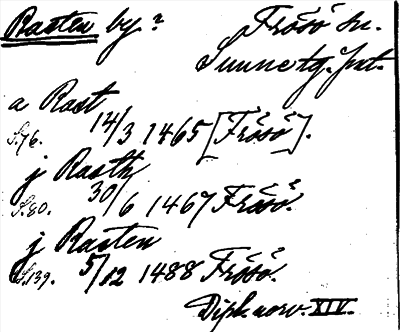 Rasten by? Frösö sn.
Sunne tg. Jtl.
a Rast
S.76. 14/3 1465 [Frösö].
j Rasth
S.80. 30/6 1467 Frösö.
j Rasten
S.139. 5/12 1488 Frösö.
Dipl. norv. XIV.